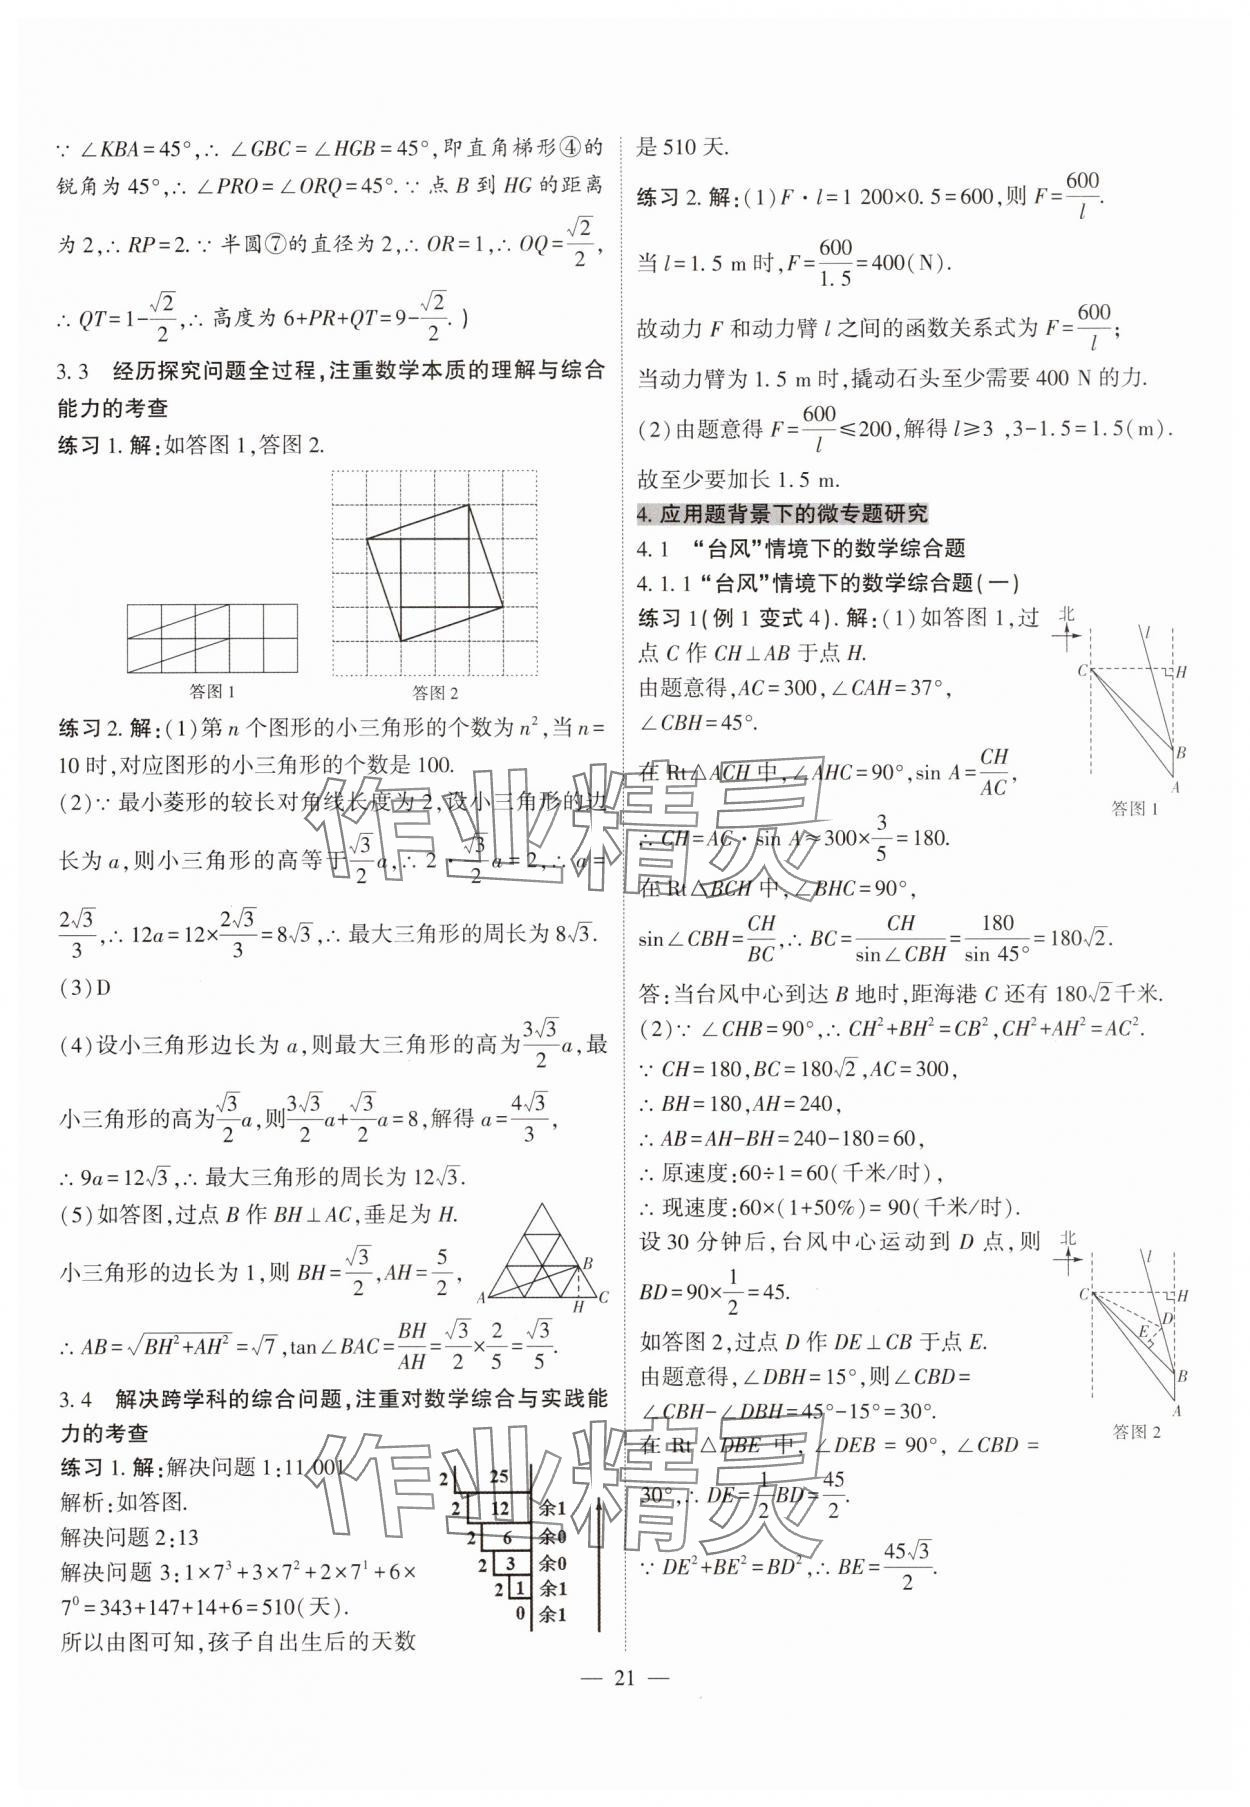 ∵ ∠KBA=45°,∴ ∠GBC=∠HGB=45°,即直角梯形④的
锐角为45°,∴ ∠PRO=∠ORQ=45°.∵ 点B到HG的距离
为2,∴ RP=2.∵ 半圆⑦的直径为2,∴ OR=1,∴ OQ=√2/2,
∴ QT=1-√2/2,∴ 高度为6+PR+QT=9-√2/2. )
3.3 经历探究问题全过程,注重数学本质的理解与综合
能力的考查
练习1.解:如答图1,答图2.
答图1
答图2
练习2.解:(1)第n个图形的小三角形的个数为n²,当n=
10时,对应图形的小三角形的个数是100.
(2)∵ 最小菱形的较长对角线长度为2,设小三角形的边
长为a,则小三角形的高等于√3/2 a,∴ 2·√3/2 a=2,∴ a=
2√3/3,∴ 12a=12×2√3/3=8√3,∴ 最大三角形的周长为8√3.
(3)D
(4)设小三角形边长为a,则最大三角形的高为3√3/2 a,最
小三角形的高为√3/2 a,则3√3/2 a+√3/2 a=8,解得a=4√3/3,
∴ 9a=12√3,∴ 最大三角形的周长为12√3.
(5)如答图,过点B作BH⊥AC,垂足为H.
小三角形的边长为1,则BH=√3/2,AH=5/2,
A
B
H
C
∴ AB=√(BH²+AH²)=√7,tan∠BAC=BH/AH=√3/2×2/5=√3/5.
3.4 解决跨学科的综合问题,注重对数学综合与实践能
力的考查
练习1.解:解决问题1:11 001
解析:如答图.
解决问题2:13
解决问题3:1×7³+3×7²+2×7¹+6×
7⁰=343+147+14+6=510(天).
所以由图可知,孩子自出生后的天数
2 25
2 12 余1
2 6 余0
2 3 余0
2 1 余1
0 余1
是510天.
练习2.解:(1)F·l=1 200×0.5=600,则F=600/l.
当l=1.5 m时,F=600/1.5=400(N).
故动力F和动力臂l之间的函数关系式为F=600/l;
当动力臂为1.5 m时,撬动石头至少需要400 N的力.
(2)由题意得F=600/l≤200,解得l≥3 ,3-1.5=1.5(m).
故至少要加长1.5 m.
4.应用题背景下的微专题研究
4.1 “台风”情境下的数学综合题
4.1.1 “台风”情境下的数学综合题(一)
练习1(例1变式4).解:(1)如答图1,过
点C作CH⊥AB于点H.
由题意得,AC=300,∠CAH=37°,
∠CBH=45°.
北
l
C
H
B
A
答图1
在Rt△ACH中,∠AHC=90°,sin A=CH/AC,
∴ CH=AC·sin A≈300×3/5=180.
在Rt△BCH中,∠BHC=90°,
sin∠CBH=CH/BC,∴ BC=CH/sin∠CBH=180/sin 45°=180√2.
答:当台风中心到达B地时,距海港C还有180√2千米.
(2)∵ ∠CHB=90°,∴ CH²+BH²=CB²,CH²+AH²=AC².
∵ CH=180,BC=180√2,AC=300,
∴ BH=180,AH=240,
∴ AB=AH-BH=240-180=60,
∴ 原速度:60÷1=60(千米/时),
∴ 现速度:60×(1+50%)=90(千米/时).
设30分钟后,台风中心运动到D点,则
BD=90×1/2=45.
如答图2,过点D作DE⊥CB于点E.
由题意得,∠DBH=15°,则∠CBD=
∠CBH-∠DBH=45°-15°=30°.
在Rt△DBE中,∠DEB=90°,∠CBD=
30°,∴ DE=1/2 BD=45/2.
∵ DE²+BE²=BD²,∴ BE=45√3/2.
北
l
C
H
D
E
B
A
答图2
— 21 —
作业精灵
作业精灵